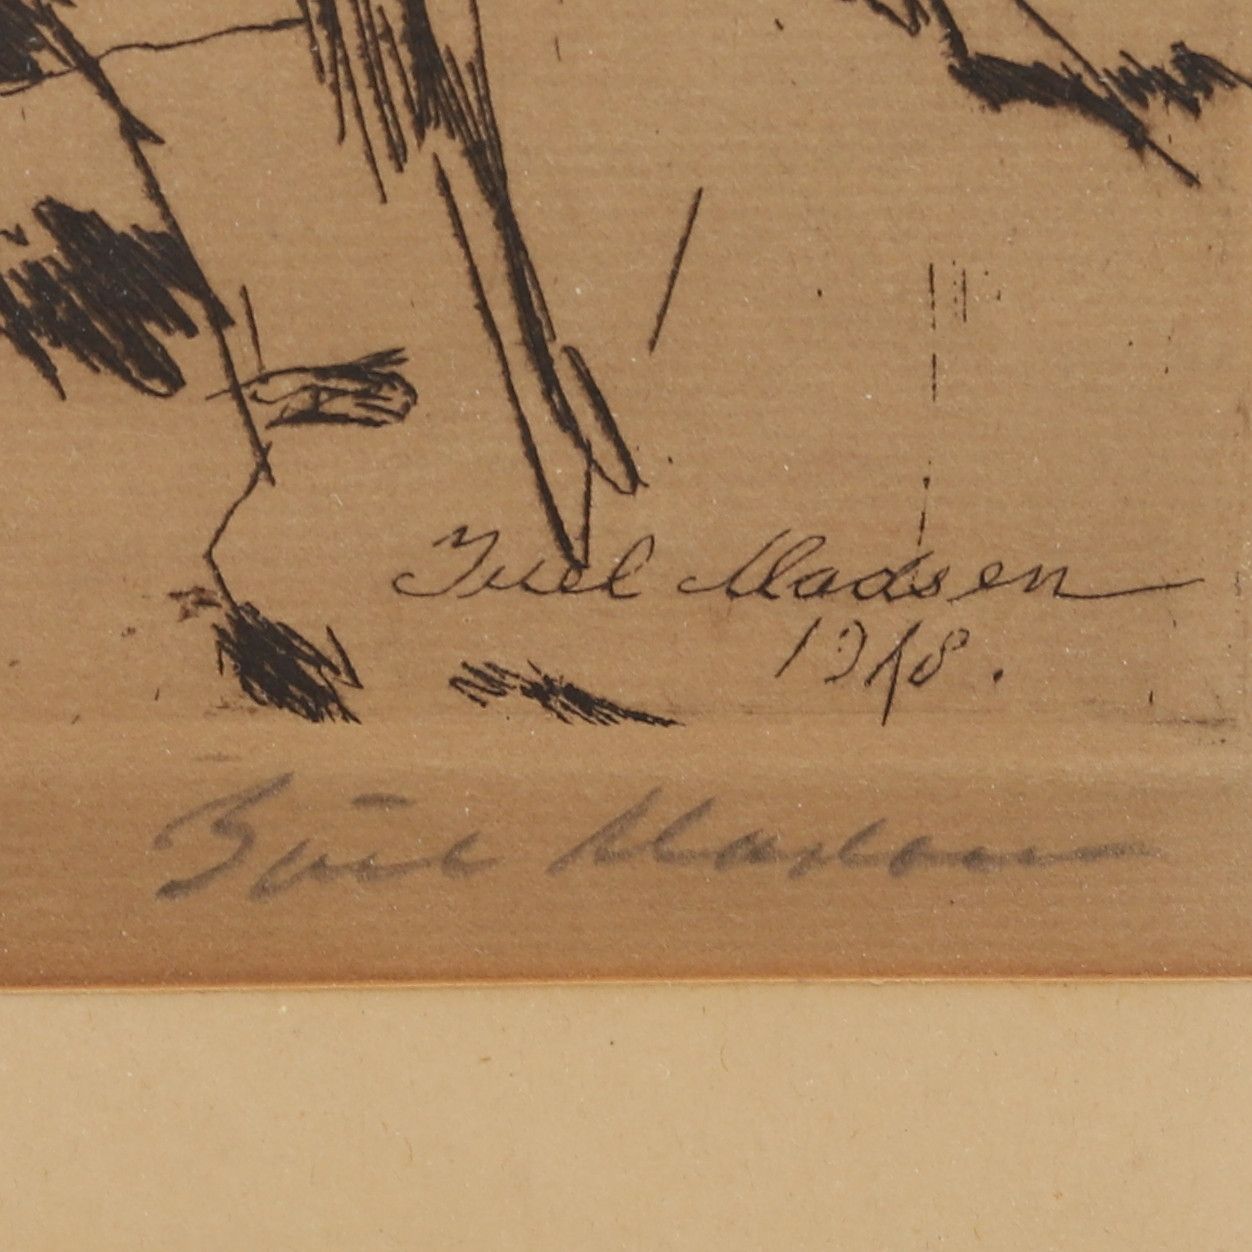 Juel Madsen
1918.
Juel Madsen